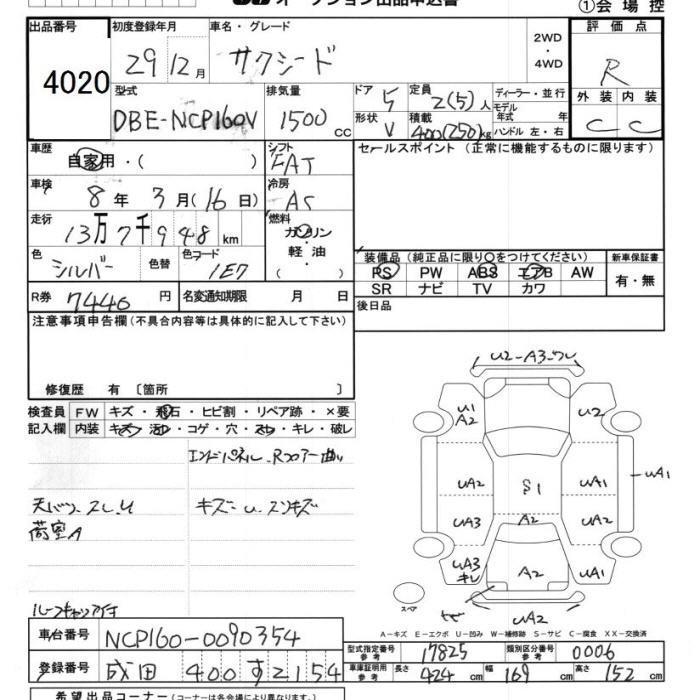 オークション出品申込書
①会場控
出品番号 4020
初度登録年月 29 12月
車名・グレード サクシード
2WD・4WD
評価点 R
外装 内装
C C
型式 DBE-NCP160V
排気量 1500 cc
ドア 5
形状 V
定員 2(5)人
積載 400(250)kg
ディーラー・並行
モデル年式 年式
ハンドル 左・右
車歴 自家用・( )
シフト FAT
セールスポイント (正常に機能するものに限ります)
車検 8年 3月(16日)
冷房 AS
走行 13万7千948km
燃料 ガソリン・軽油( )
色 シルバー 色替 色コード 1E7
装備品(純正品に限り○をつけてください)
PS PW ABS エアB AW
SR ナビ TV カワ
新車保証書 有・無
R券 7440円
名変通知期限 月 日
後日品
注意事項申告欄(不具合内容等は具体的に記入して下さい)
修復歴 有 〔箇所 〕
検査員記入欄
FW キズ・飛石・ヒビ割・リペア跡・×要
内装 キズ・汚・コゲ・穴・スレ・キレ・破レ
エンドパネル、Rフロアー曲り
天バリ スレ、U
キズ U スンキズ
荷室A
ルーフキャリア付
U2-A3-ワレ
U1 A2
U2
UA2
S1
UA1
UA1
UA3
A2
UA2
UA3 キレ
A2
UA1
スペア
UA2
A-キズ E-エクボ U-凹み W-補修跡 S-サビ C-腐食 XX-交換済
車台番号 NCP160-0090354
登録番号 成田 400 す 2154
型式指定番号 参考 17825
類別区分番号 参考 0006
車庫証明用 参考 長さ 424cm 幅 169cm 高さ 152cm
希望出品コーナー(コーナーは各会場により異なります。)